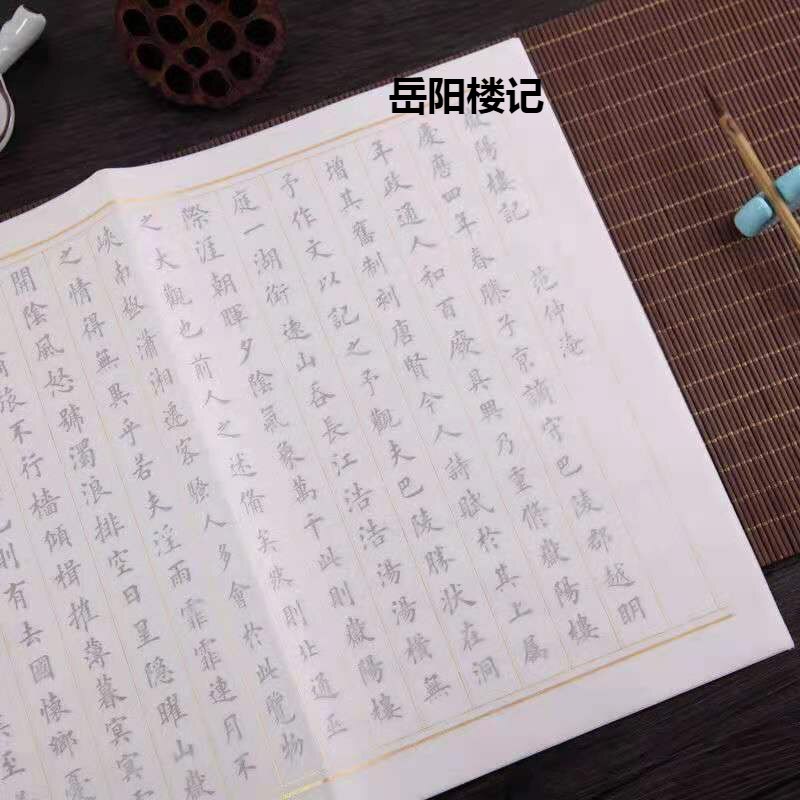 岳阳楼记
嶽陽樓記 范仲淹
慶應四年春滕子京謫守巴陵郡越明
年政通人和百廢具興乃重修嶽陽樓
增其舊制刻唐賢今人詩賦於其上屬
予作文以記之予觀夫巴陵勝狀在洞
庭一湖銜遠山吞長江浩浩湯湯橫無
際涯朝暉夕陰氣象萬千此則嶽陽樓
之大觀也前人之述備矣然則北通巫
峽南極瀟湘遷客騷人多會於此覽物
之情得無異乎若夫淫雨霏霏連月不
開陰風怒號濁浪排空日星隱曜山嶽
旅不行檣傾楫摧薄暮冥冥
則有去國懷鄉憂
至